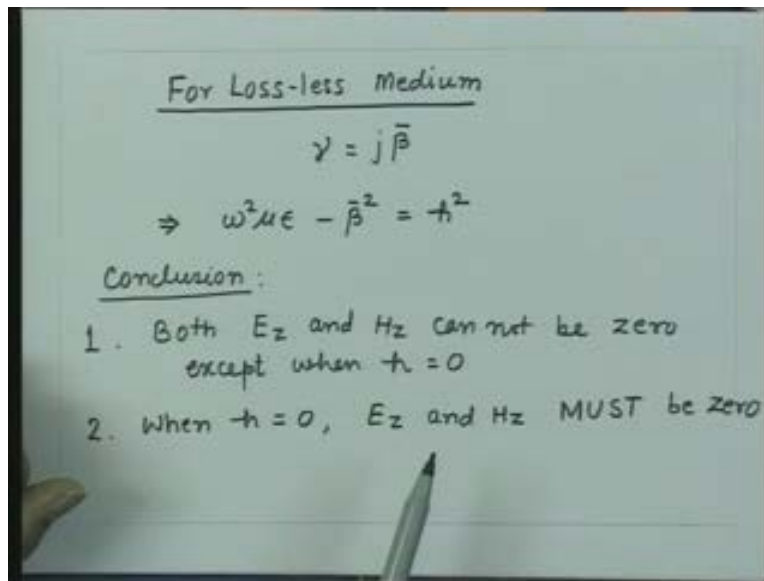 For Loss-less Medium
γ = jβ̄
⇒ ω²με - β̄² = h²
Conclusion :
1. Both Ez and Hz can not be zero
except when h = 0
2. When h = 0, Ez and Hz MUST be zero